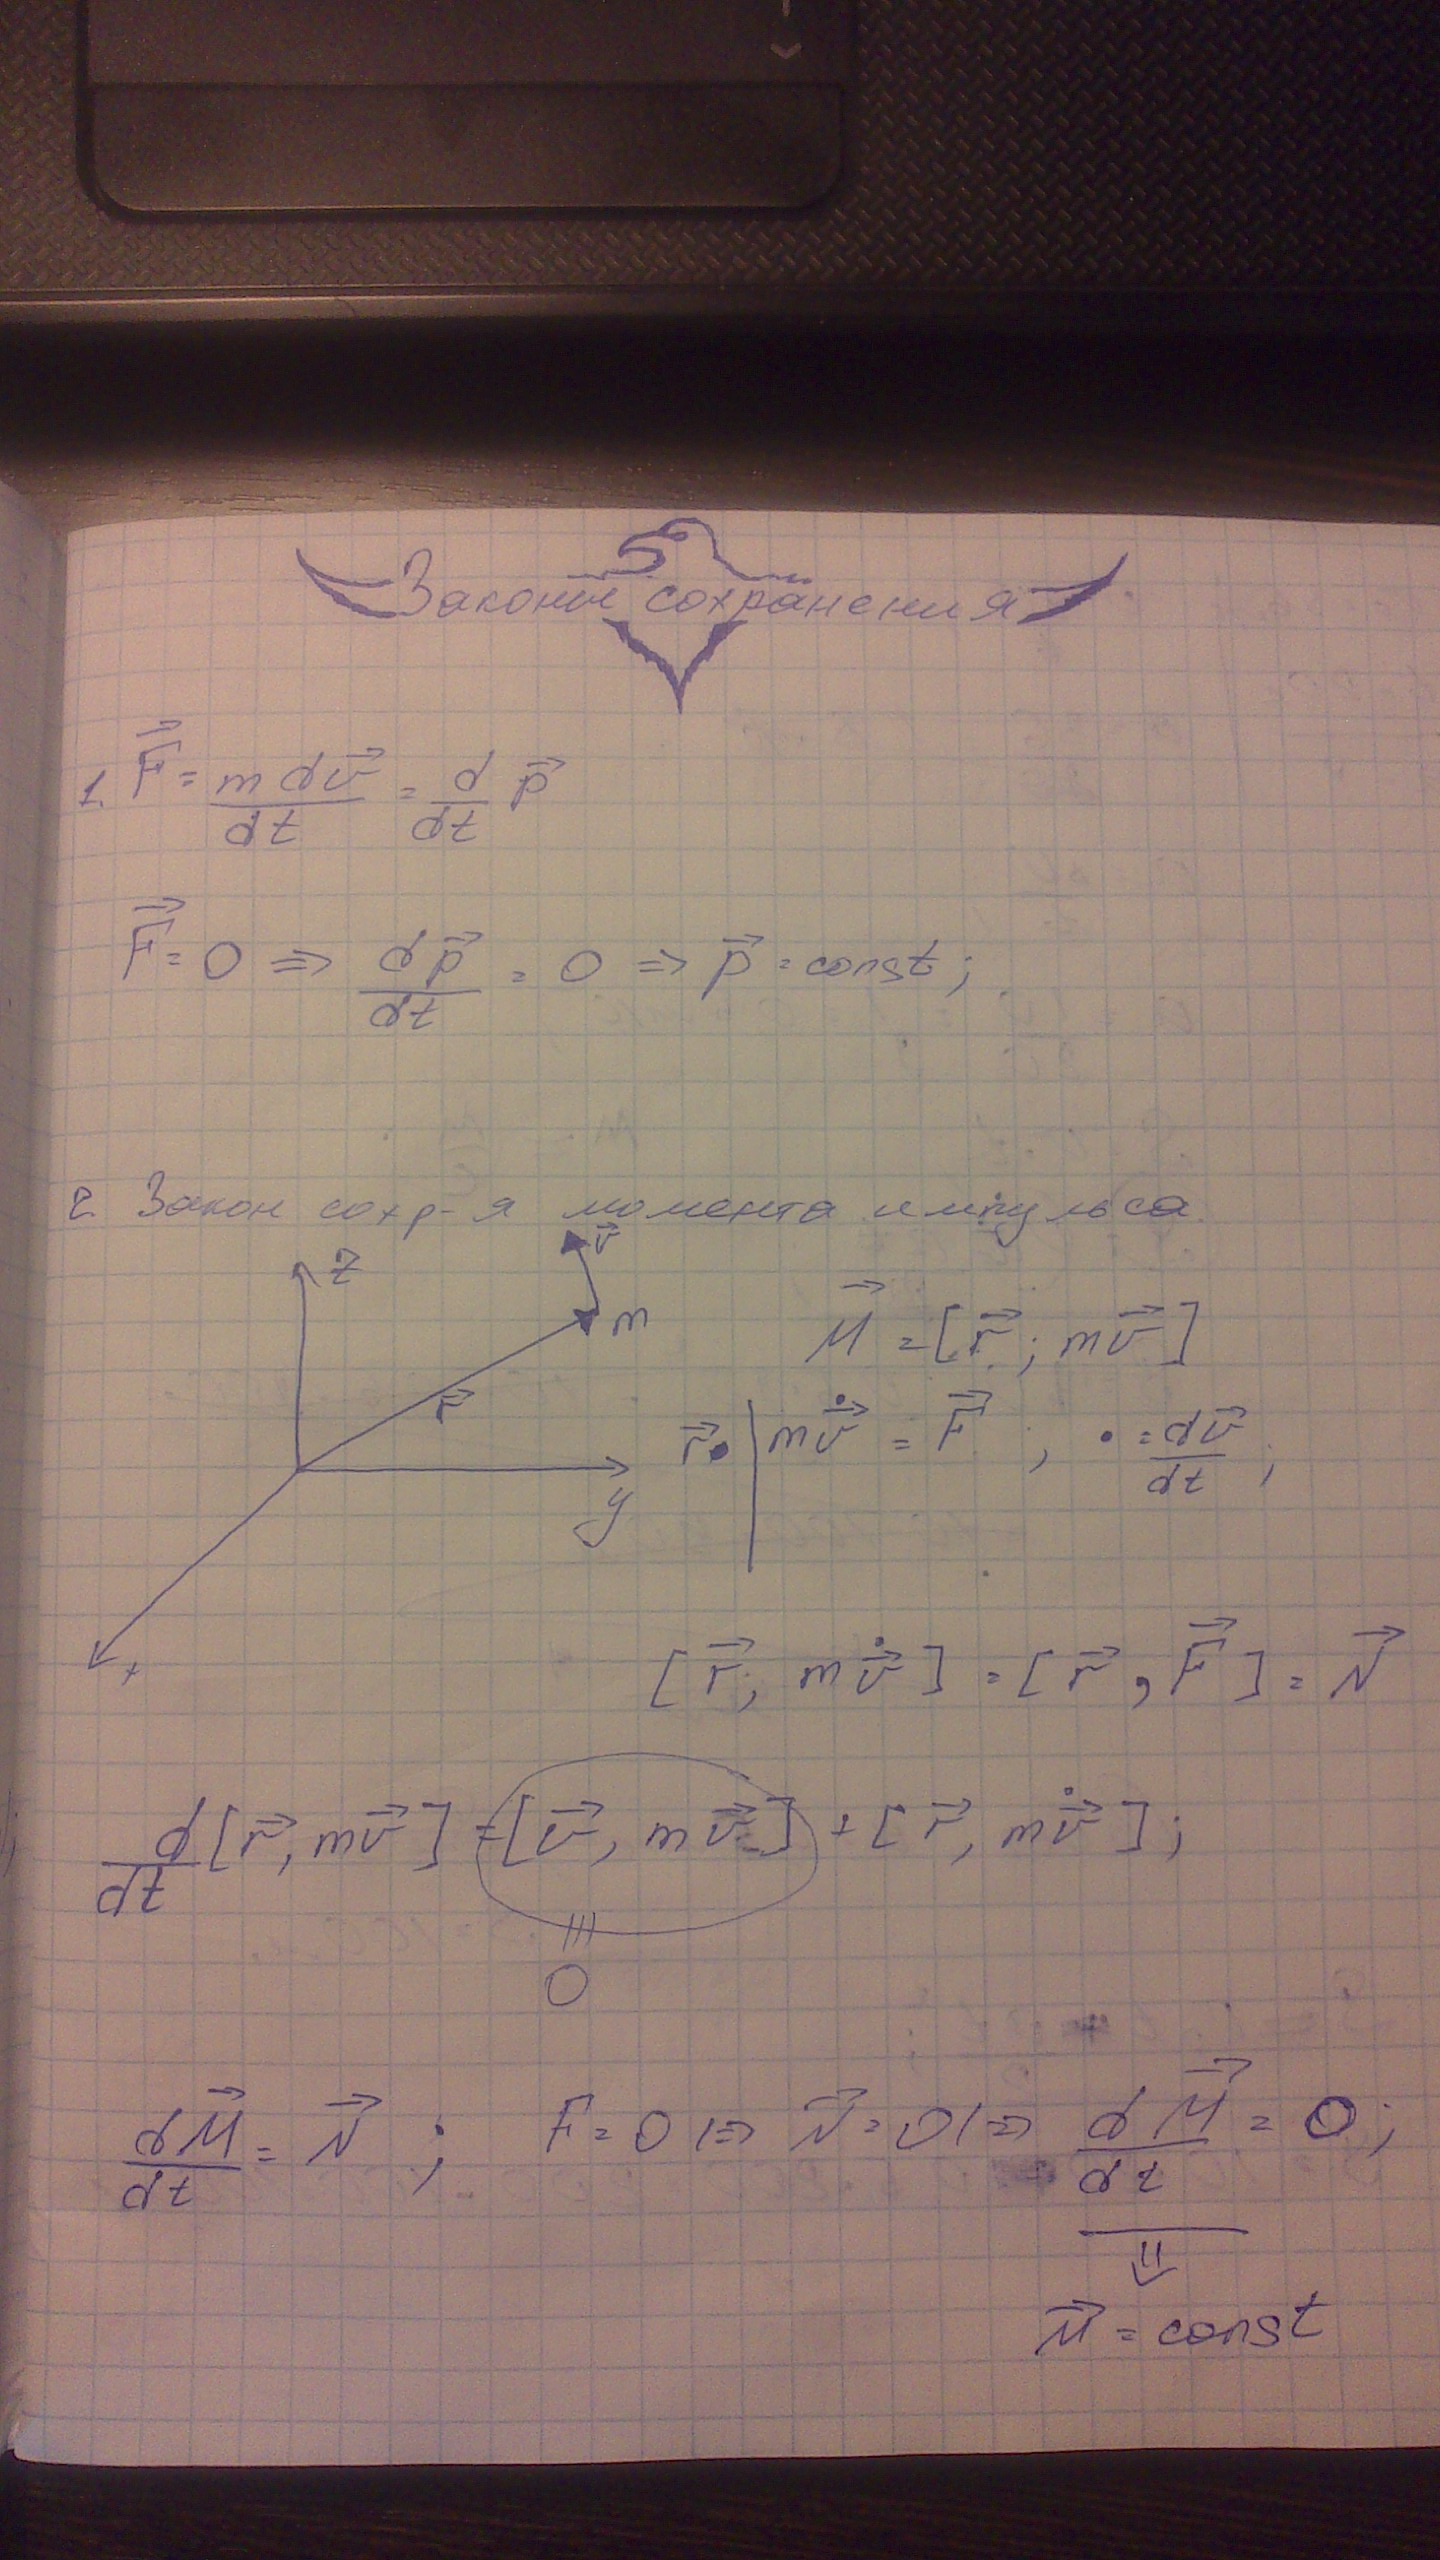 Законы сохранения
1. F⃗ = m dv⃗/dt = d/dt p⃗
F⃗ = 0 ⇒ dp⃗/dt = 0 ⇒ p⃗ = const;
2. Закон сохр-я момента импульса
z v⃗
m
M⃗ = [r⃗; mv⃗]
r⃗
r⃗• | mv̇⃗ = F⃗ , • = dv⃗/dt ;
y
x
[r⃗; mv̇⃗] = [r⃗, F⃗] = N⃗
d/dt [r⃗, mv⃗] = [v⃗, mv⃗] + [r⃗, mv̇⃗];
|||
0
dM⃗/dt = N⃗ ; F = 0 |⇒ N⃗ = 0 |⇒ dM⃗/dt = 0;
⇓
M⃗ = const